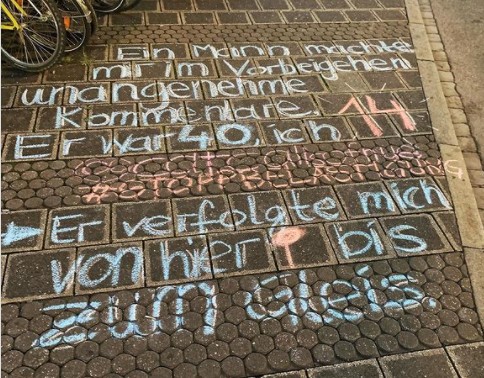 Ein Mann machte
mir im Vorbeigehen
unangenehme
Kommentare.
Er war 40, ich 14
#STOPPBELÄSTIGUNG
Er verfolgte mich
von hier bis
zum Gleis.